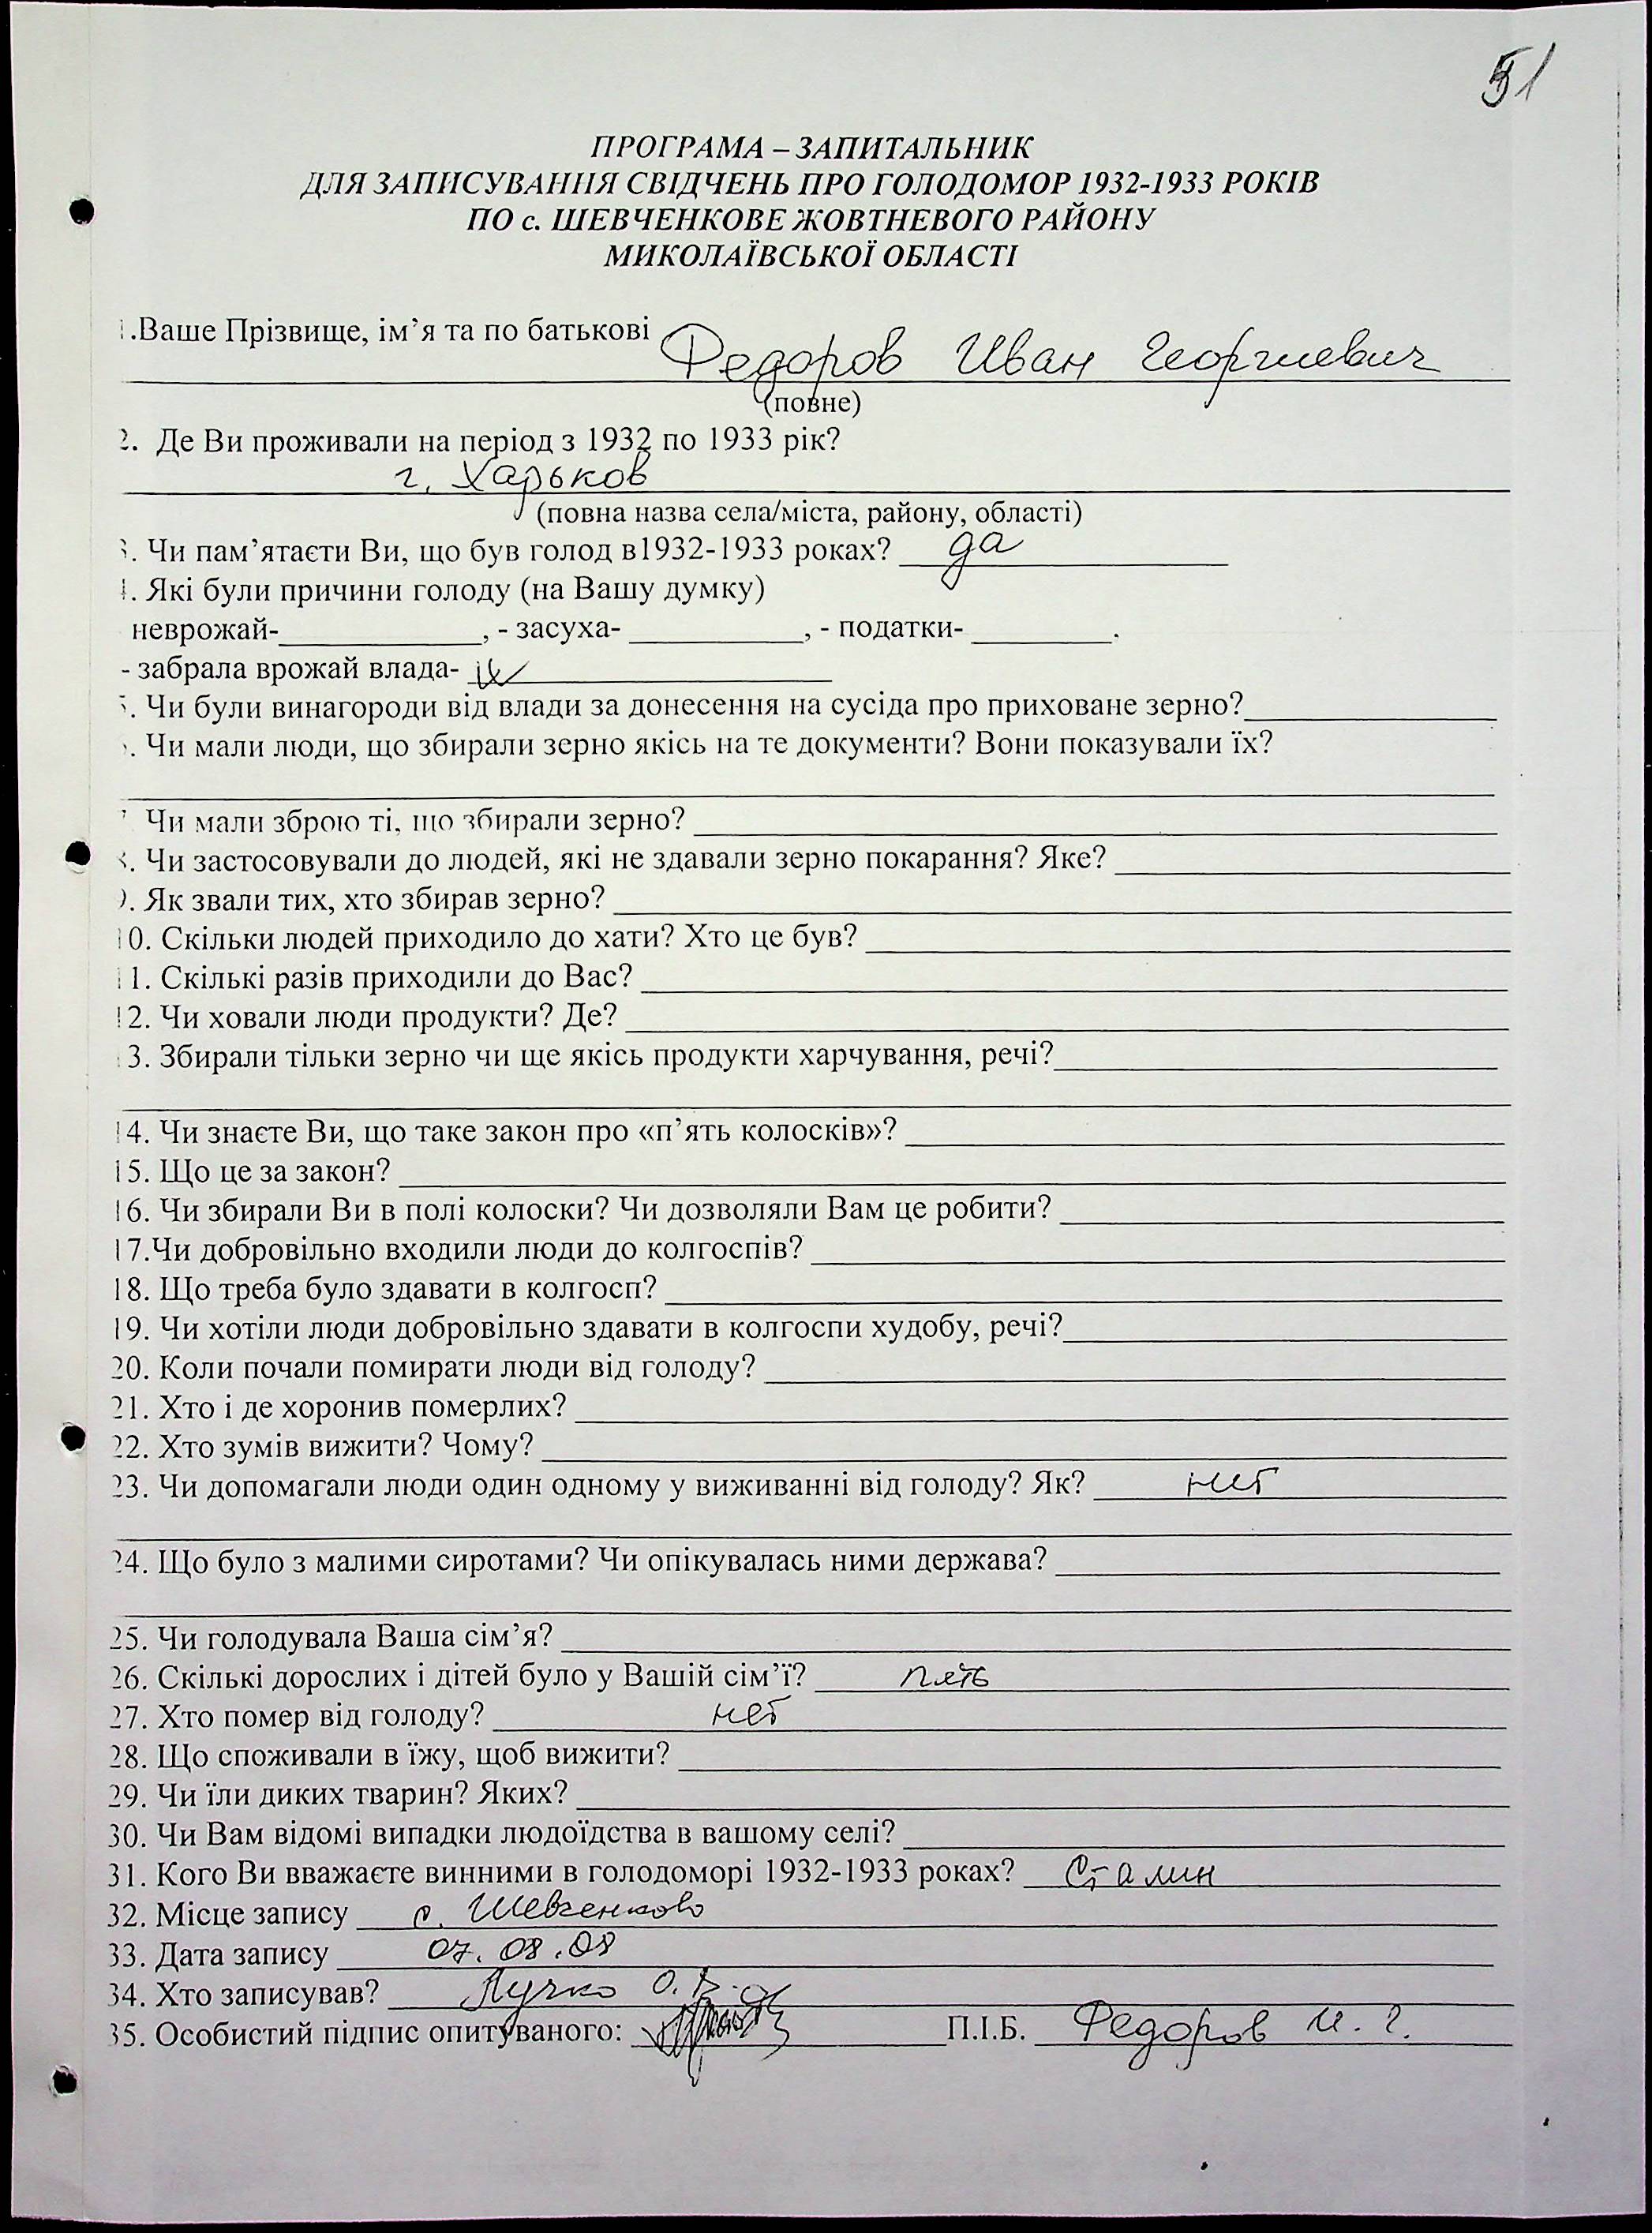 51
ПРОГРАМА – ЗАПИТАЛЬНИК
ДЛЯ ЗАПИСУВАННЯ СВІДЧЕНЬ ПРО ГОЛОДОМОР 1932-1933 РОКІВ
ПО с. ШЕВЧЕНКОВЕ ЖОВТНЕВОГО РАЙОНУ
МИКОЛАЇВСЬКОЇ ОБЛАСТІ
1.Ваше Прізвище, ім’я та по батькові
Федоров Иван Георгиевич
(повне)
2. Де Ви проживали на період з 1932 по 1933 рік?
г. Харьков
(повна назва села/міста, району, області)
3. Чи пам’ятаєти Ви, що був голод в1932-1933 роках? да
4. Які були причини голоду (на Вашу думку)
неврожай-____________, - засуха- ___________, - податки- _________.
- забрала врожай влада-
5. Чи були винагороди від влади за донесення на сусіда про приховане зерно?
6. Чи мали люди, що збирали зерно якісь на те документи? Вони показували їх?
7 Чи мали зброю ті, що збирали зерно?
8. Чи застосовували до людей, які не здавали зерно покарання? Яке?
9. Як звали тих, хто збирав зерно?
10. Скільки людей приходило до хати? Хто це був?
11. Скількі разів приходили до Вас?
12. Чи ховали люди продукти? Де?
13. Збирали тільки зерно чи ще якісь продукти харчування, речі?
14. Чи знаєте Ви, що таке закон про «п’ять колосків»?
15. Що це за закон?
16. Чи збирали Ви в полі колоски? Чи дозволяли Вам це робити?
17.Чи добровільно входили люди до колгоспів?
18. Що треба було здавати в колгосп?
19. Чи хотіли люди добровільно здавати в колгоспи худобу, речі?
20. Коли почали помирати люди від голоду?
21. Хто і де хоронив померлих?
22. Хто зумів вижити? Чому?
23. Чи допомагали люди один одному у виживанні від голоду? Як? нет
24. Що було з малими сиротами? Чи опікувалась ними держава?
25. Чи голодувала Ваша сім’я?
26. Скількі дорослих і дітей було у Вашій сім’ї? пять
27. Хто помер від голоду? нет
28. Що споживали в їжу, щоб вижити?
29. Чи їли диких тварин? Яких?
30. Чи Вам відомі випадки людоїдства в вашому селі?
31. Кого Ви вважаєте винними в голодоморі 1932-1933 роках? Сталин
32. Місце запису с. Шевченково
33. Дата запису 07.08.08
34. Хто записував? Лучко О.В.
35. Особистий підпис опитуваного: П.І.Б. Федоров И. Г.